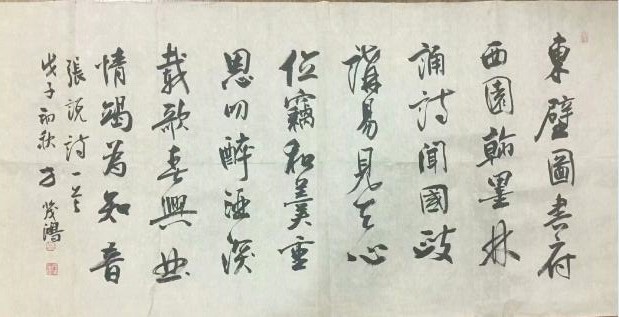 東壁圖書府
西園翰墨林
誦詩聞國政
講易見天心
位竊和羹重
恩叨醉酒深
載歌春興曲
情竭為知音
張說詩一首
戊子初秋 方 鴻